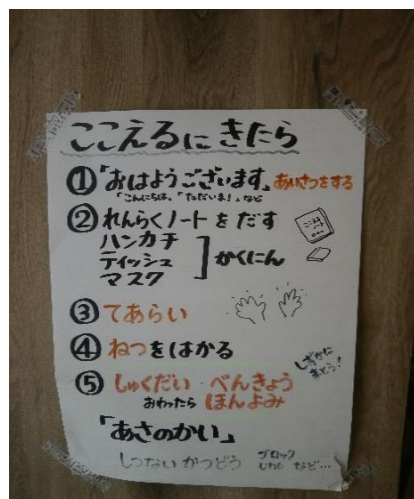 ここえるにきたら
①「おはようございます」あいさつをする
「こんにちは」「ただいま！」など
②れんらくノートをだす
ハンカチ
ティッシュ
マスク
かくにん
ここえる
ノート
③てあらい
④ねつをはかる
しずかに
まとう！
⑤しゅくだい・べんきょう
おわったら ほんよみ
「あさのかい」
しつないかつどう ブロック
UNO など…